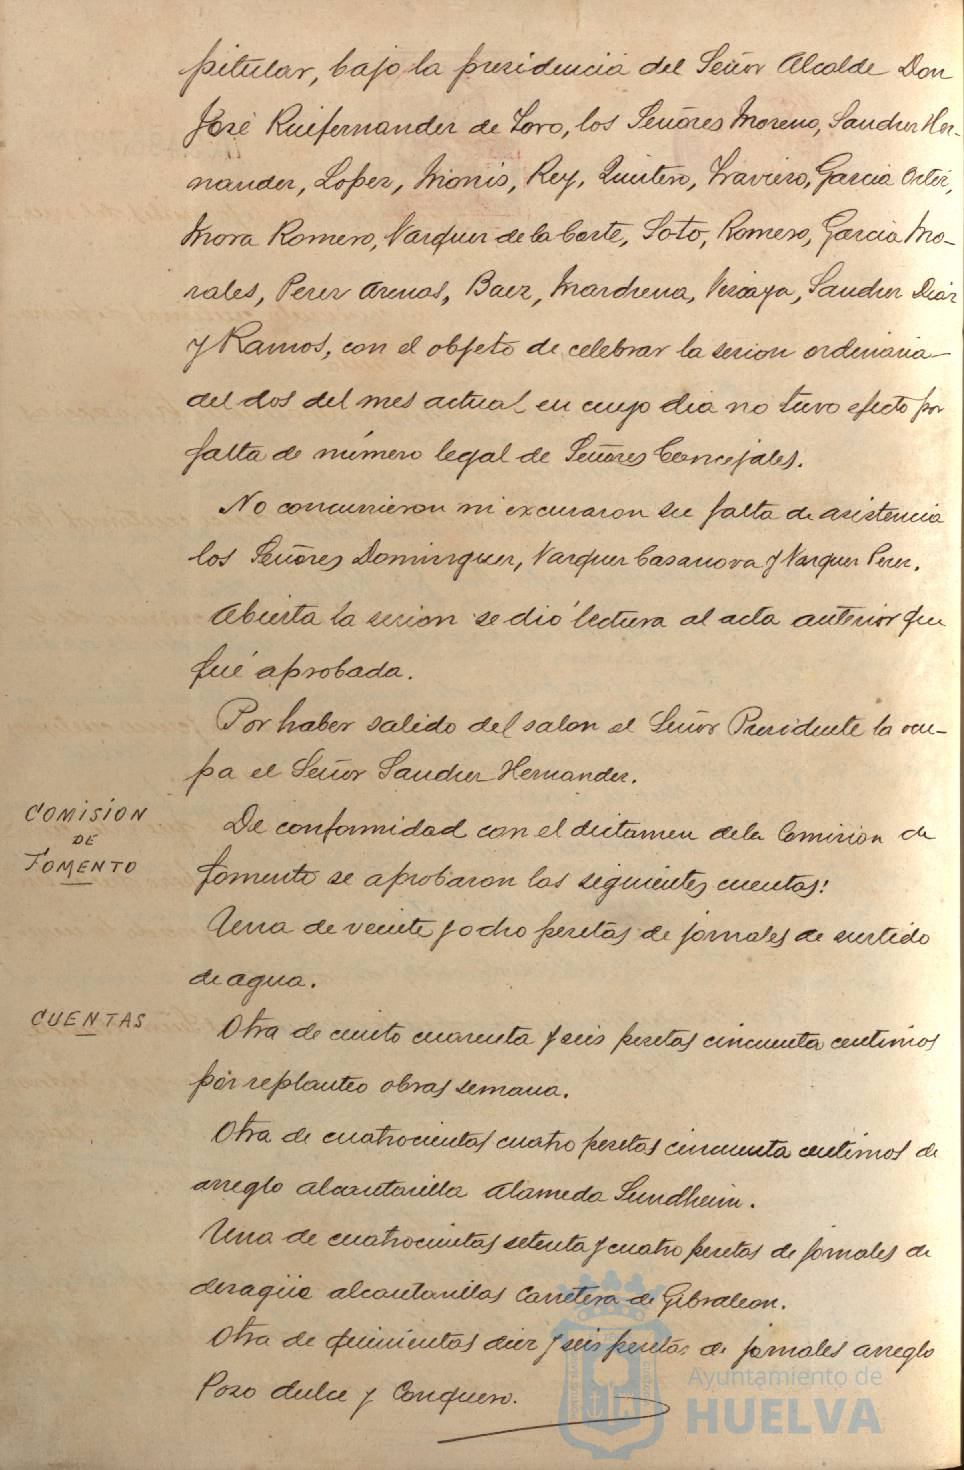 pitular, bajo la presidencia del Señor Alcalde Don
José Ruifernandez de Toro, los Señores Moreno, Sanchez Her-
nandez, Lopez, Monis, Rey, Quintero, Traviero, Garcia Ortiz,
Mora Romero, Vazquez de la Corte, Soto, Romero, Garcia Mo-
rales, Perez Arenas, Baez, Marchena, Vizcaya, Sanchez Diaz
y Ramos, con el objeto de celebrar la sesion ordinaria
del dos del mes actual en cuyo dia no tuvo efecto por
falta de número legal de Señores Concejales.
No concurrieron ni excusaron su falta de asistencia
los Señores Dominguez, Vazquez Casanova y Vazquez Perez.
Abierta la sesion se dió lectura al acta anterior que
fué aprobada.
Por haber salido del salon el Señor Presidente la ocu-
pa el Señor Sanchez Hernandez.
COMISION
DE
FOMENTO
De conformidad con el dictamen de la Comision de
fomento se aprobaron las siguientes cuentas:
Una de veinte y ocho pesetas de jornales de surtido
de agua.
CUENTAS
Otra de ciento cuarenta y seis pesetas cincuenta centimos
por replanteo obras semana.
Otra de cuatrocientas cuatro pesetas cincuenta centimos de
arreglo alcantarilla Alameda Sundheim.
Una de cuatrocientas setenta y cuatro pesetas de jornales de
desagüe alcantarillas Carretera de Gibraleon.
Otra de quinientas diez y seis pesetas de jornales arreglo
Pozo dulce y Conquero.
Ayuntamiento de
HUELVA